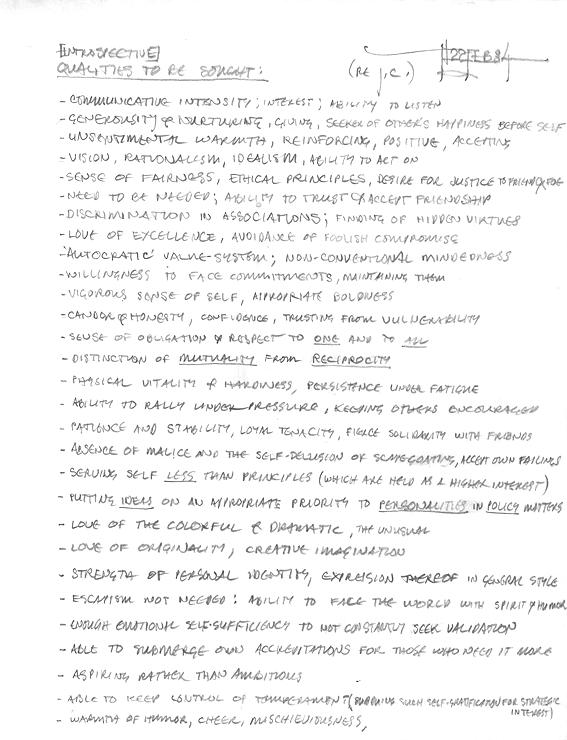 [INTROSPECTIVE]
22 FEB 84
QUALITIES TO BE SOUGHT:
(RE J.C.)
- COMMUNICATIVE INTENSITY; INTEREST; ABILITY TO LISTEN
- GENEROSITY & NURTURING, GIVING, SEEKER OF OTHER'S HAPPINESS BEFORE SELF
- UNSENTIMENTAL WARMTH, REINFORCING, POSITIVE, ACCEPTING
- VISION, RATIONALISM, IDEALISM, ABILITY TO ACT ON
- SENSE OF FAIRNESS, ETHICAL PRINCIPLES, DESIRE FOR JUSTICE TO FRIEND & FOE
- NEED TO BE NEEDED; ABILITY TO TRUST & ACCEPT FRIENDSHIP
- DISCRIMINATION IN ASSOCIATIONS; FINDING OF HIDDEN VIRTUES
- LOVE OF EXCELLENCE, AVOIDANCE OF FOOLISH COMPROMISE
- 'AUTOCRATIC' VALUE-SYSTEM; NON-CONVENTIONAL MINDEDNESS
- WILLINGNESS TO FACE COMMITMENTS, MAINTAINING THEM
- VIGOROUS SENSE OF SELF, APPROPRIATE BOLDNESS
- CANDOR & HONESTY, CONFIDENCE, TRUSTING FROM VULNERABILITY
- SENSE OF OBLIGATION & RESPECT TO ONE AND TO ALL
- DISTINCTION OF MUTUALITY FROM RECIPROCITY
- PHYSICAL VITALITY & HARDINESS, PERSISTENCE UNDER FATIGUE
- ABILITY TO RALLY UNDER PRESSURE, KEEPING OTHERS ENCOURAGED
- PATIENCE AND STABILITY, LOYAL TENACITY, FIERCE SOLIDARITY WITH FRIENDS
- ABSENCE OF MALICE AND THE SELF-DELUSION OF SCAPEGOATING, ACCEPT OWN FAILINGS
- SERVING SELF LESS THAN PRINCIPLES (WHICH ARE HELD AS A HIGHER INTEREST)
- PUTTING IDEAS ON AN APPROPRIATE PRIORITY TO PERSONALITIES IN POLICY MATTERS
- LOVE OF THE COLORFUL & DRAMATIC, THE UNUSUAL
- LOVE OF ORIGINALITY, CREATIVE IMAGINATION
- STRENGTH OF PERSONAL IDENTITY, EXPRESSION THEREOF IN GENERAL STYLE
- ESCAPISM NOT NEEDED: ABILITY TO FACE THE WORLD WITH SPIRIT & HUMOR
- ENOUGH EMOTIONAL SELF-SUFFICIENCY TO NOT CONSTANTLY SEEK VALIDATION
- ABLE TO SUBMERGE OWN ACCREDITATIONS FOR THOSE WHO NEED IT MORE
- ASPIRING RATHER THAN AMBITIOUS
- ABLE TO KEEP CONTROL OF TEMPERAMENT (SUBDUING SUCH SELF-GRATIFICATION FOR STRATEGIC
INTEREST)
- WARMTH OF HUMOR, CHEER, MISCHIEVIOUSNESS,